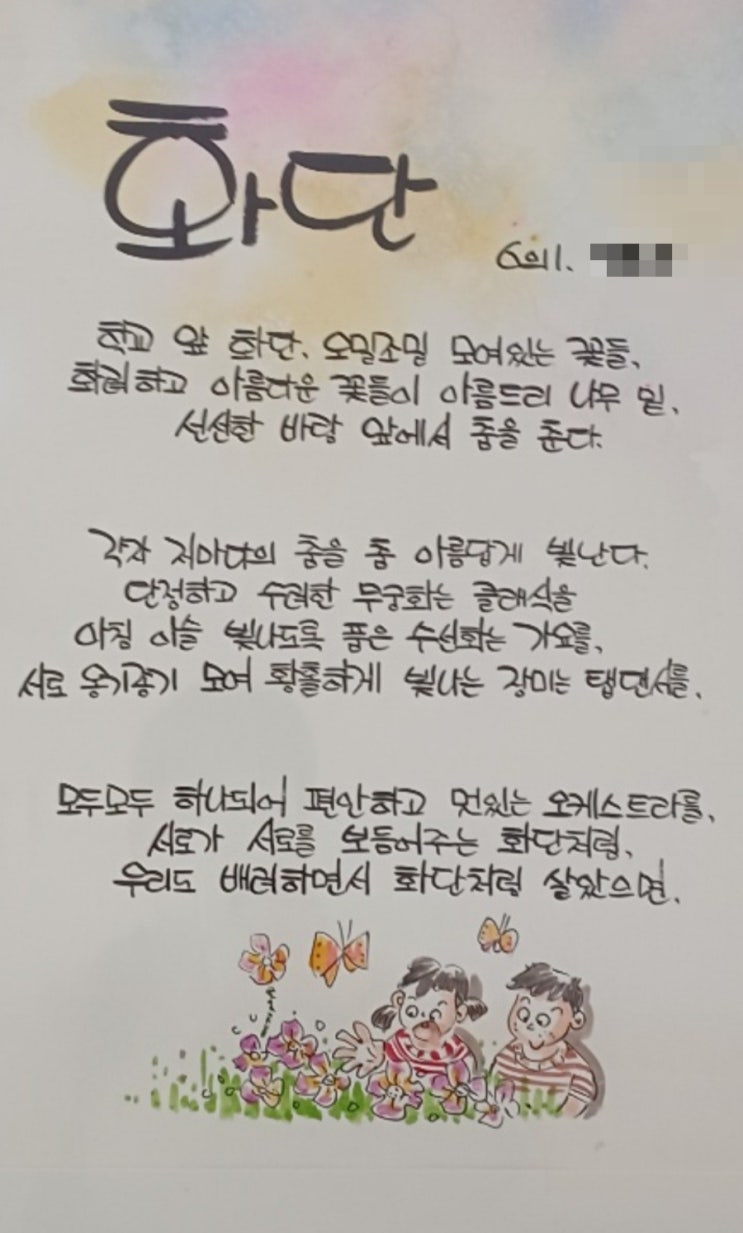 화단
6의1.
학교 앞 화단. 오밀조밀 모여있는 꽃들,
화려하고 아름다운 꽃들이 아름드리 나무 밑,
선선한 바람 앞에서 춤을 춘다.
각자 저마다의 춤을 춤 아름답게 빛난다.
단정하고 수려한 무궁화는 클래식을
아침 이슬 빛나도록 품은 수선화는 가요를,
서로 옹기종기 모여 황홀하게 빛나는 장미는 탭댄서를,
모두모두 하나되어 편안하고 멋있는 오케스트라를,
서로가 서로를 보듬어주는 화단처럼,
우리도 배려하면서 화단처럼 살았으면.